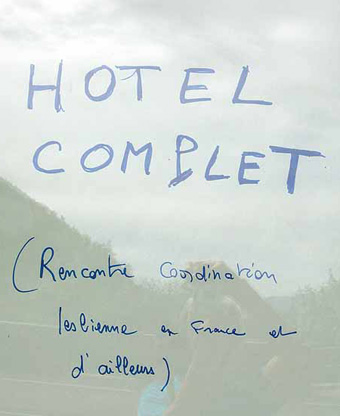 HOTEL
COMPLET
(Rencontre Coordination
lesbienne en France et
d'ailleurs)